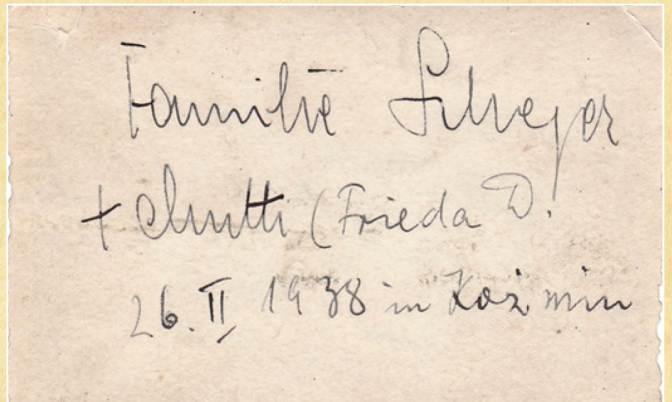 Familie Scheyer
+ Mutti (Frieda D.
26. II 1938 in Kożmin